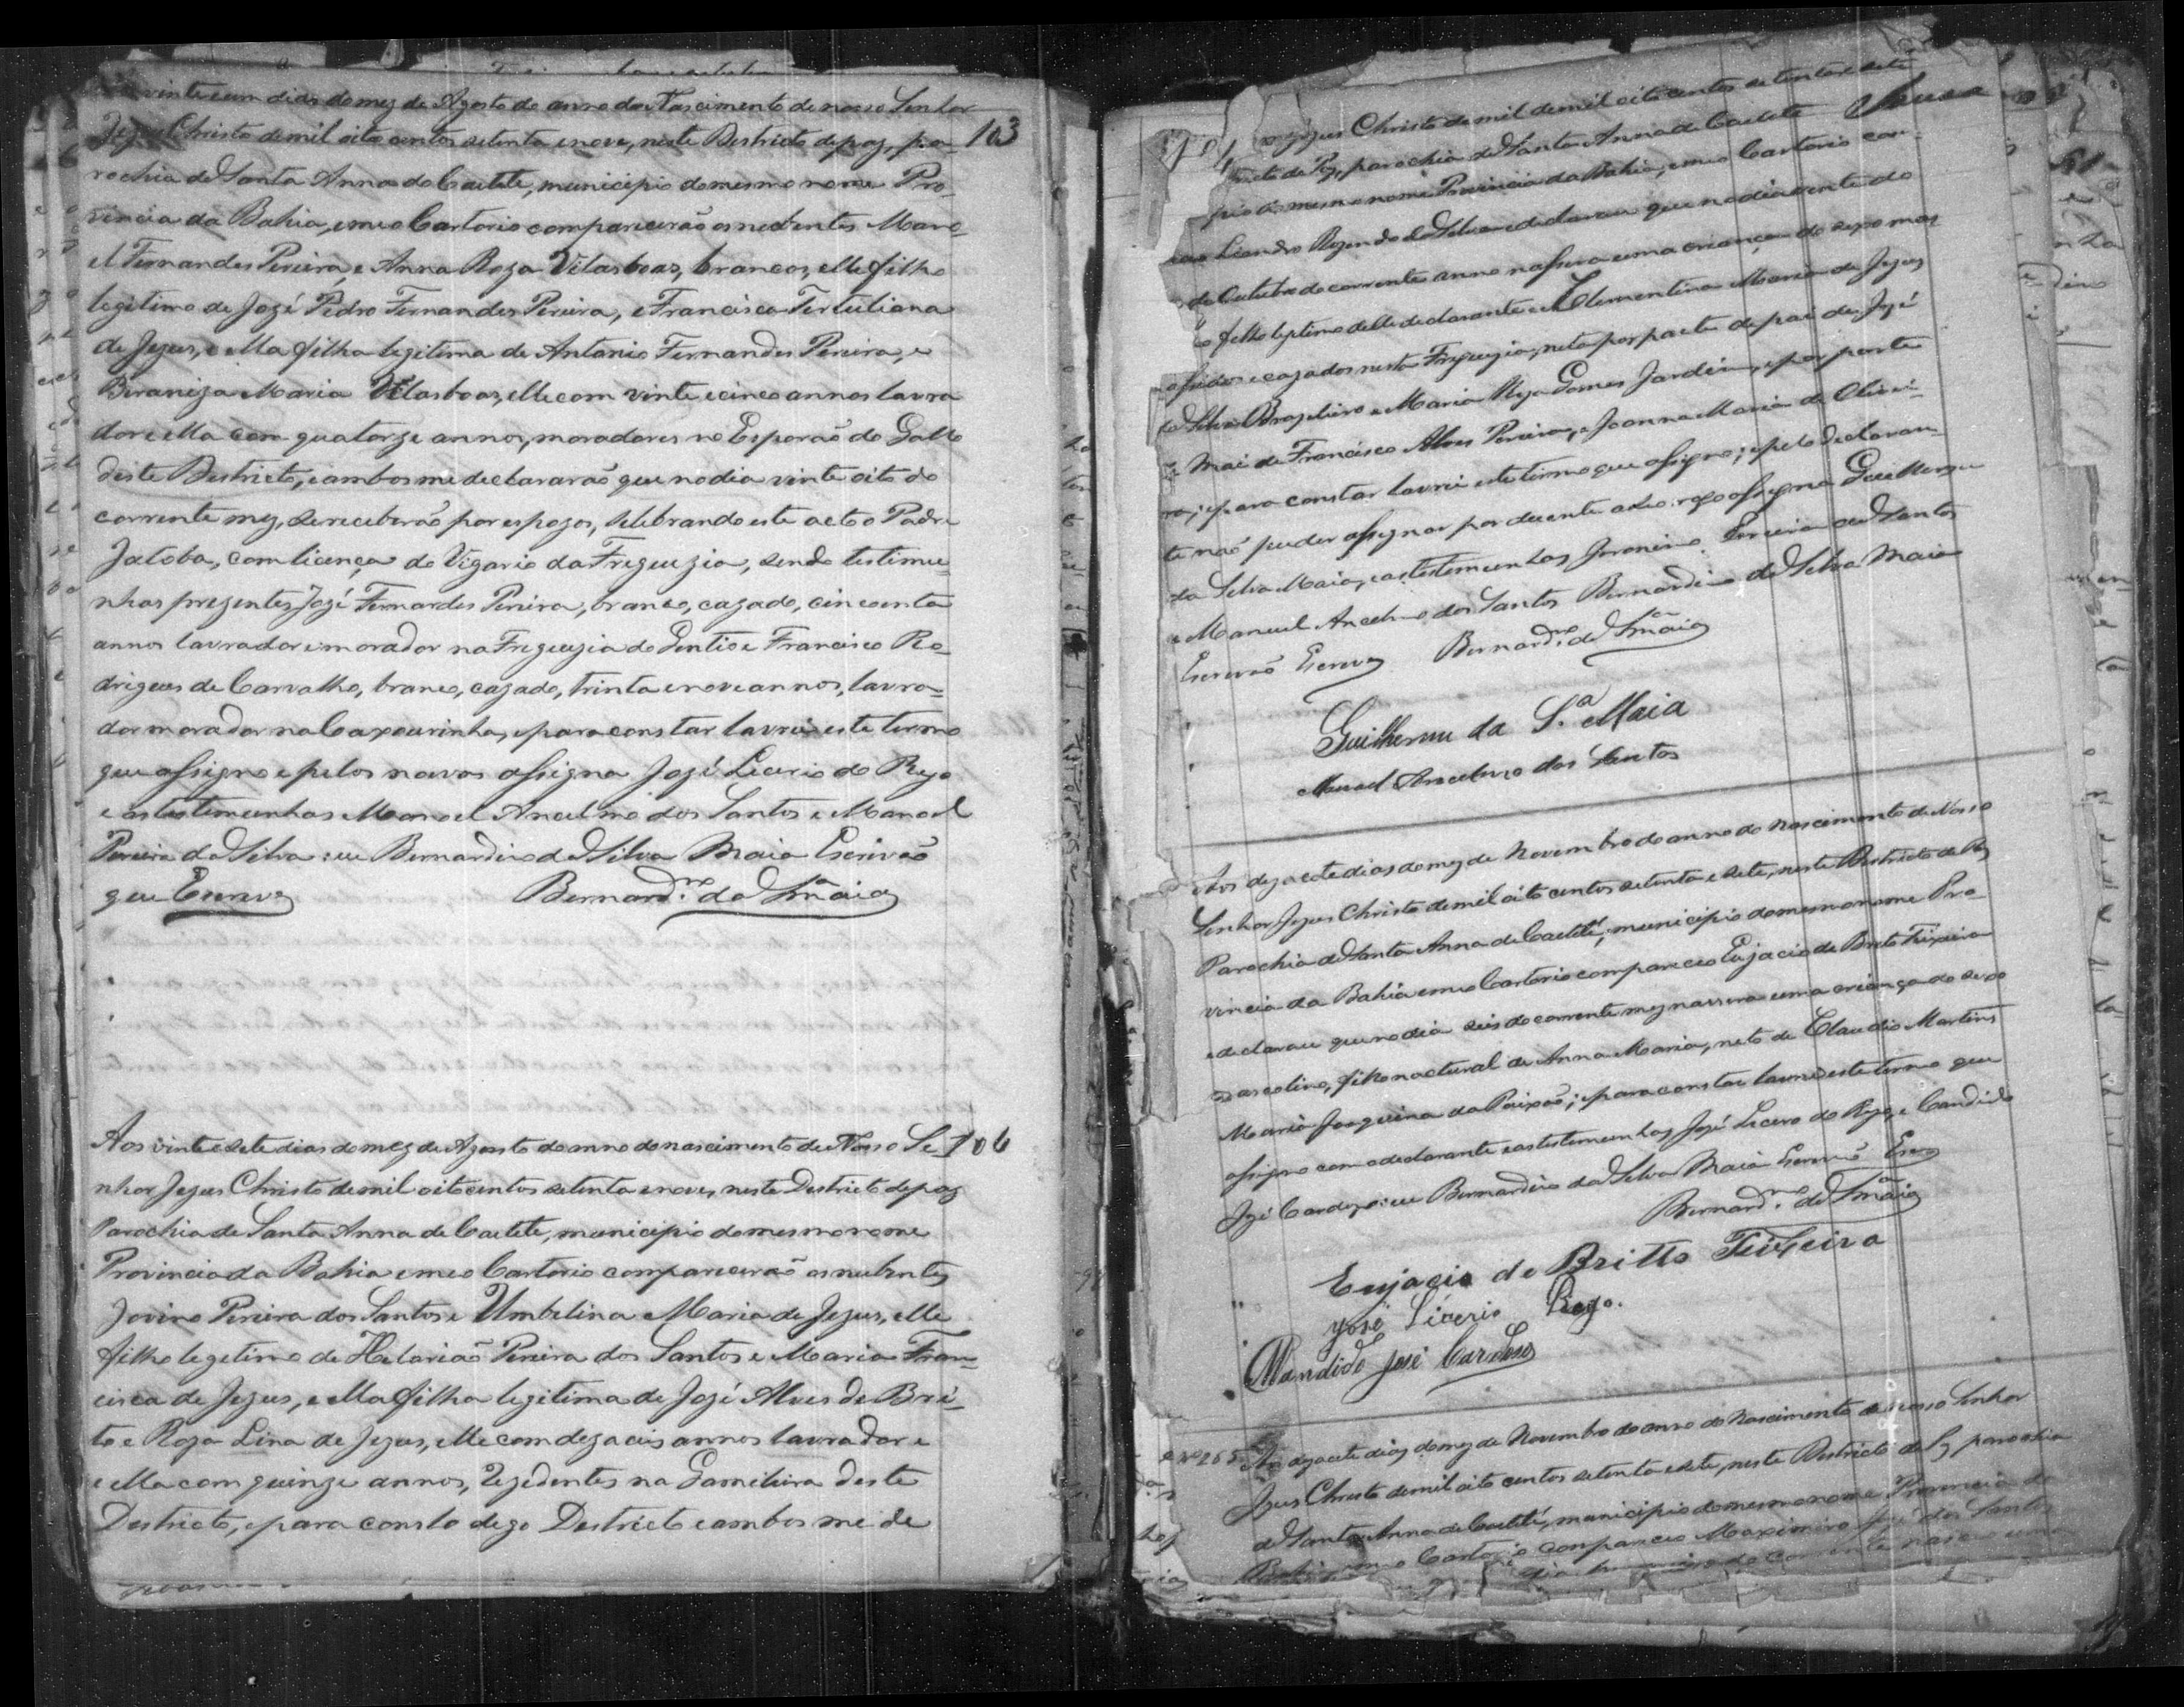 vinte e um dias do mez de Agosto do anno do Nascimento de nosso Senhor
Jezus Christo de mil oito centos setenta e nove, neste Destricto de paz, pa- 103
rochia de Santa Anna do Caetete, municipio do mesmo nome Pro-
vincia da Bahia, em meo Cartorio comparecerão os nubentes Mano-
el Fernandes Pereira, e Anna Roza Vilasboas, brancos, elle filho
legitimo de Jozé Pedro Fernandes Pereira, e Francisca Tertuliana
de Jezus, e ella filha legitima de Antonio Fernandes Pereira, e
Maria Vilasboas, elle com vinte e cinco annos lavra
dor e ella com quatorze annos, moradores no Esporão do Gallo
deste Destricto, e ambos me declararão que no dia vinte oito do
corrente mez, se receberão por espozos, selebrando este acto o Padre
Jatoba, com licença do Vigario da Freguezia, sendo testimu-
nhas prezentes Jozé Fernandes Pereira, branco, cazado, cincoenta
annos lavrador e morador na Freguezia do Gentio e Francisco Ro-
drigues de Carvalho, branco, cazado, trinta e nove annos, lavra-
dor morador na Caxoeirinha, e para constar lavrei este termo
que assigno e pelos noivos assigna Jozé Licerio do Rego
e as testemunhas Manoel Ancelmo dos Santos e Manoel
Pereira da Silva: eu Bernardino da Silva Maia Escrivão
que Escrevy Bernard.no da S.a Maia
Aos vinte e sete dias do mez de Agosto do anno do nascimento de Nosso Se- 104
nhor Jezus Christo de mil oito centos setenta e nove, neste Destricto de paz
Parochia de Santa Anna de Caetete, municipio do mesmo nome
Provincia da Bahia em meo Cartorio comparecerão os nubentes
Jovino Pereira dos Santos e Umbelina Maria de Jezus, elle
filho legetimo de Helarião Pereira dos Santos e Maria Fran-
cisca de Jezus, e ella filha legitima de Jozé Alves de Bri-
to e Roza Lina de Jezus, elle com dezaceis annos lavrador e
e ella com quinze annos, rezedentes na Gamelleira deste
Destricto, e para consto digo Destricto e ambos me de
Jezus Christo de mil de mil oito centos setenta e sete
tricto de Paz, parochia de Santa Anna de Caetete
pio do mesmo nome Provincia da Bahia, em meo Cartorio com-
Liandro Rozendo da Silva e declarou que no dia vinte do
de Outubro do corrente anno nassera uma criança do sexo mas
filho legitimo delle declarante e Clementina Maria de Jezus
e cazados nesta Freguezia, neto por parte de pai de Jozé
da Silva Brazileiro e Maria Roza Gomes Jardim, e por parte
Mai de Francisco Alves Pereira, e Joanna Maria de Olivei-
ra; e para constar lavrei este termo que assigno; e pelo declaran-
te não puder assignar por duente a seo rogo assigna Guilherme
da Silva Maia, e as testemunhas Jeronimo Pereira dos Santos
e Manuel Ancelmo dos Santos Bernardino da Silva Maia
Escrivão Escrevy Bernard.no da S.a Maia
Guilherme da S.a Maia
Manoel Anselmo dos Santos
Aos dezacete dias do mez de Novembro do anno do Nascimento de Nosso
Senhor Jezus Christo de mil oito centos setenta e sete, neste Destricto de Paz
Parochia de Santa Anna de Caetité, municipio do mesmo nome Pro-
vincia da Bahia em meo Cartorio compareceo Eujacio de Brito Teixeira
e declarou que no dia seis do corrente mez nassera uma criança do sexo
mascolino, filho natural de Anna Maria, neto de Claudio Martins
Maria Joaquina da Paixão; e para constar lavrei este termo que
assigno com o declarante e as testemunhas Jozé Licero do Rego, e Candido
Jozé Cardozo: eu Bernardino da Silva Maia Escrivão Escrevy
Bernard.no da S.a Maia
Eujacio de Britto Teixeira
José Licerio Rego.
Candido José Cardoso
N.o 265 Aos dezacete dias do mez de Novembro do anno do Nascimento de nosso Senhor
Jezus Christo de mil oito centos setenta e sete, neste Destricto de Paz parochia
de Santa Anna de Caetité, municipio do mesmo nome Provincia da
Bahia em meo Cartorio compareceo Maximiro José dos Santos
do corrente nasceu uma